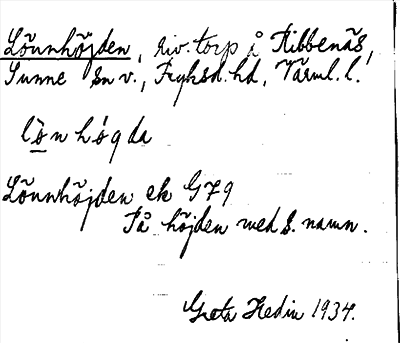 Lönnhöjden, riv. torp å Ribbenäs,
Sunne sn v., Fryksd. hd, Värml. l.
lò̱nhó̱gda
Lönnhöjden ek G79
På höjden med s. namn.
Greta Hedin 1934.